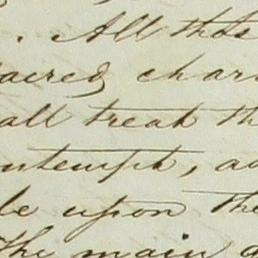 . All thos
sacred char
all treat th
ntempt, a
le upon the
The main g